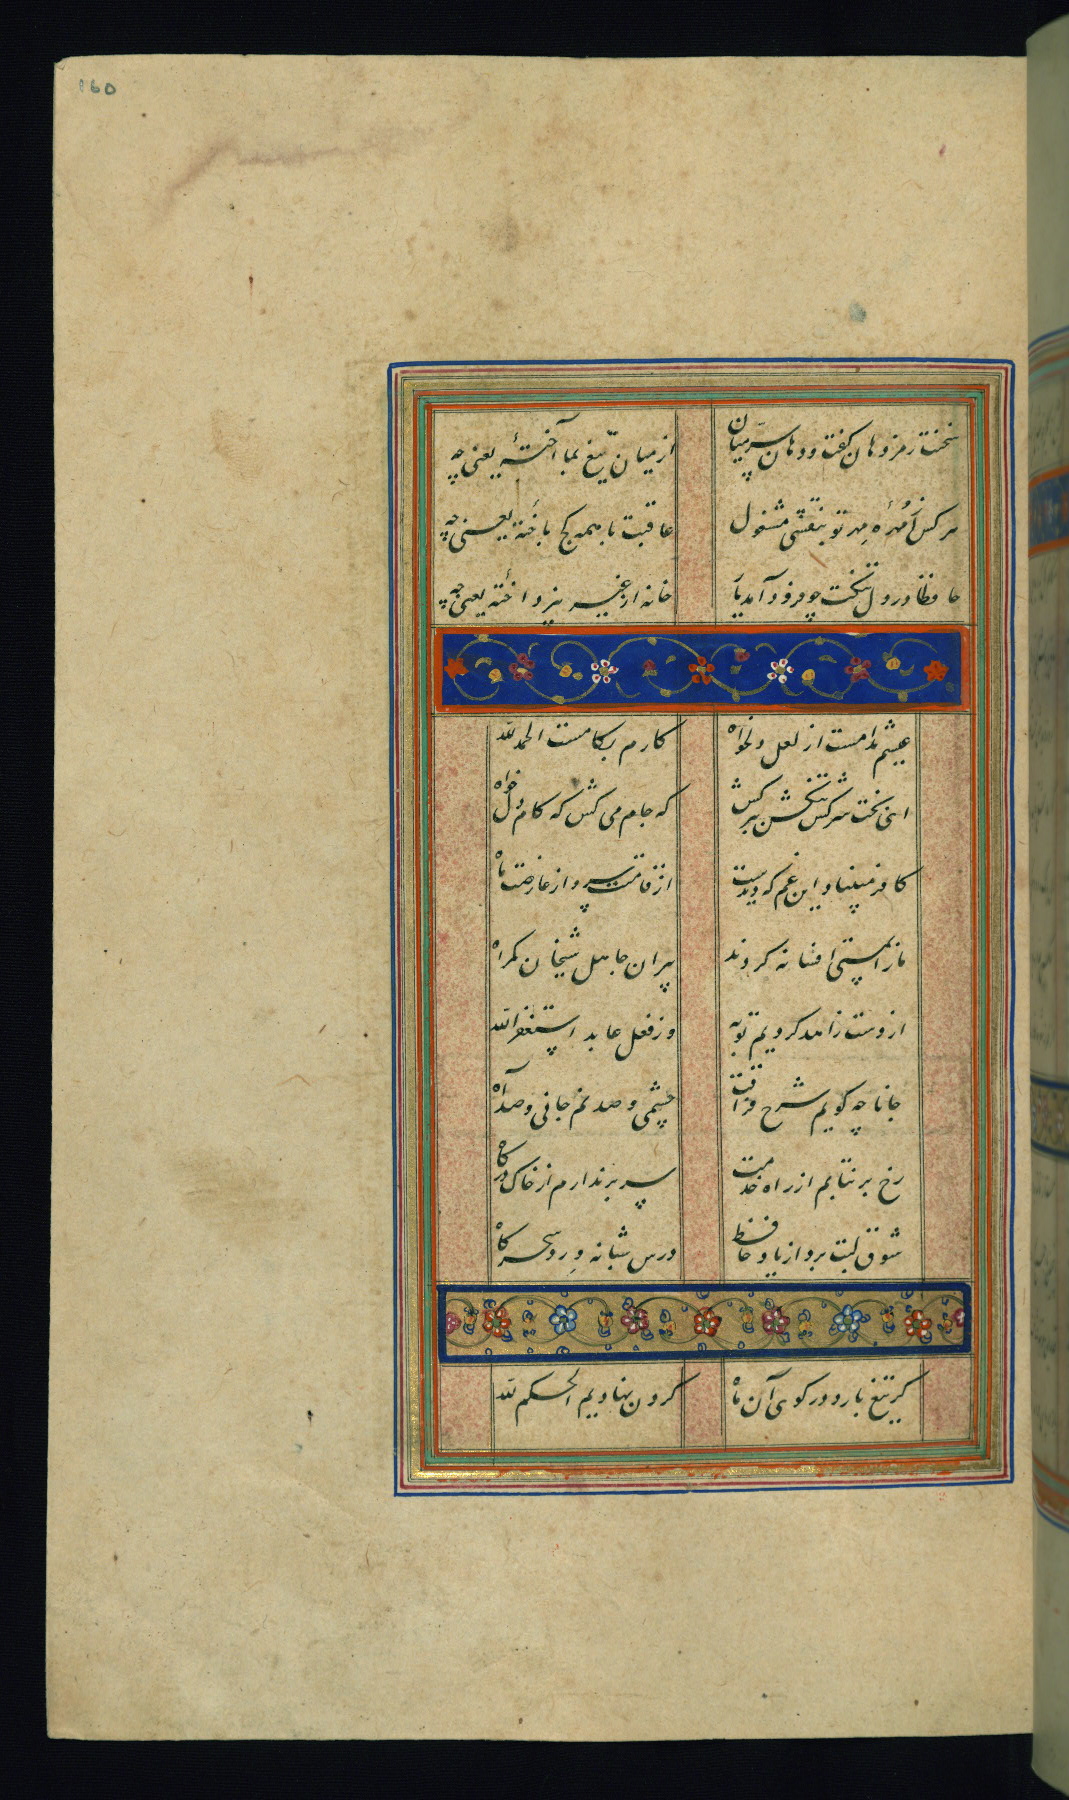 ۱۶۵
سخنت رمز دهان گفت و دهان سرّ میان
از میان تیغ بما آختهٔ یعنی چه
هر کس از مُهرهٔ مهر تو بنقشی مشغول
عاقبت با همه کج باختهٔ یعنی چه
حافظا در دل تنگت چو فرود آمد یار
خانه از غیر نپرداختهٔ یعنی چه
عیشم مدامست از لعل دلخواه
کارم بکامست الحمد لله
ای بخت سرکش تنگش ببر کش
که جام می کش که کام دل خواه
کافر مبیناد این غم که دیدست
از قامتت سرو از عارضت ماه
ما را بمستی افسانه کردند
پیران جاهل شیخان کمراه
از دست زاهد کردیم توبه
وز فعل عابد استغفر الله
جانا چه کویم شرح فراقت
چشمی و صد نم جانی و صد آه
رخ برنتابم از راه خدمت
سر برندارم از خاک درکاه
شوق لبت برد از یاد حافظ
درس شبانه ورد سحرکاه
کر تیغ بارد در کوی آن ماه
کردن نهادیم الحکم لله